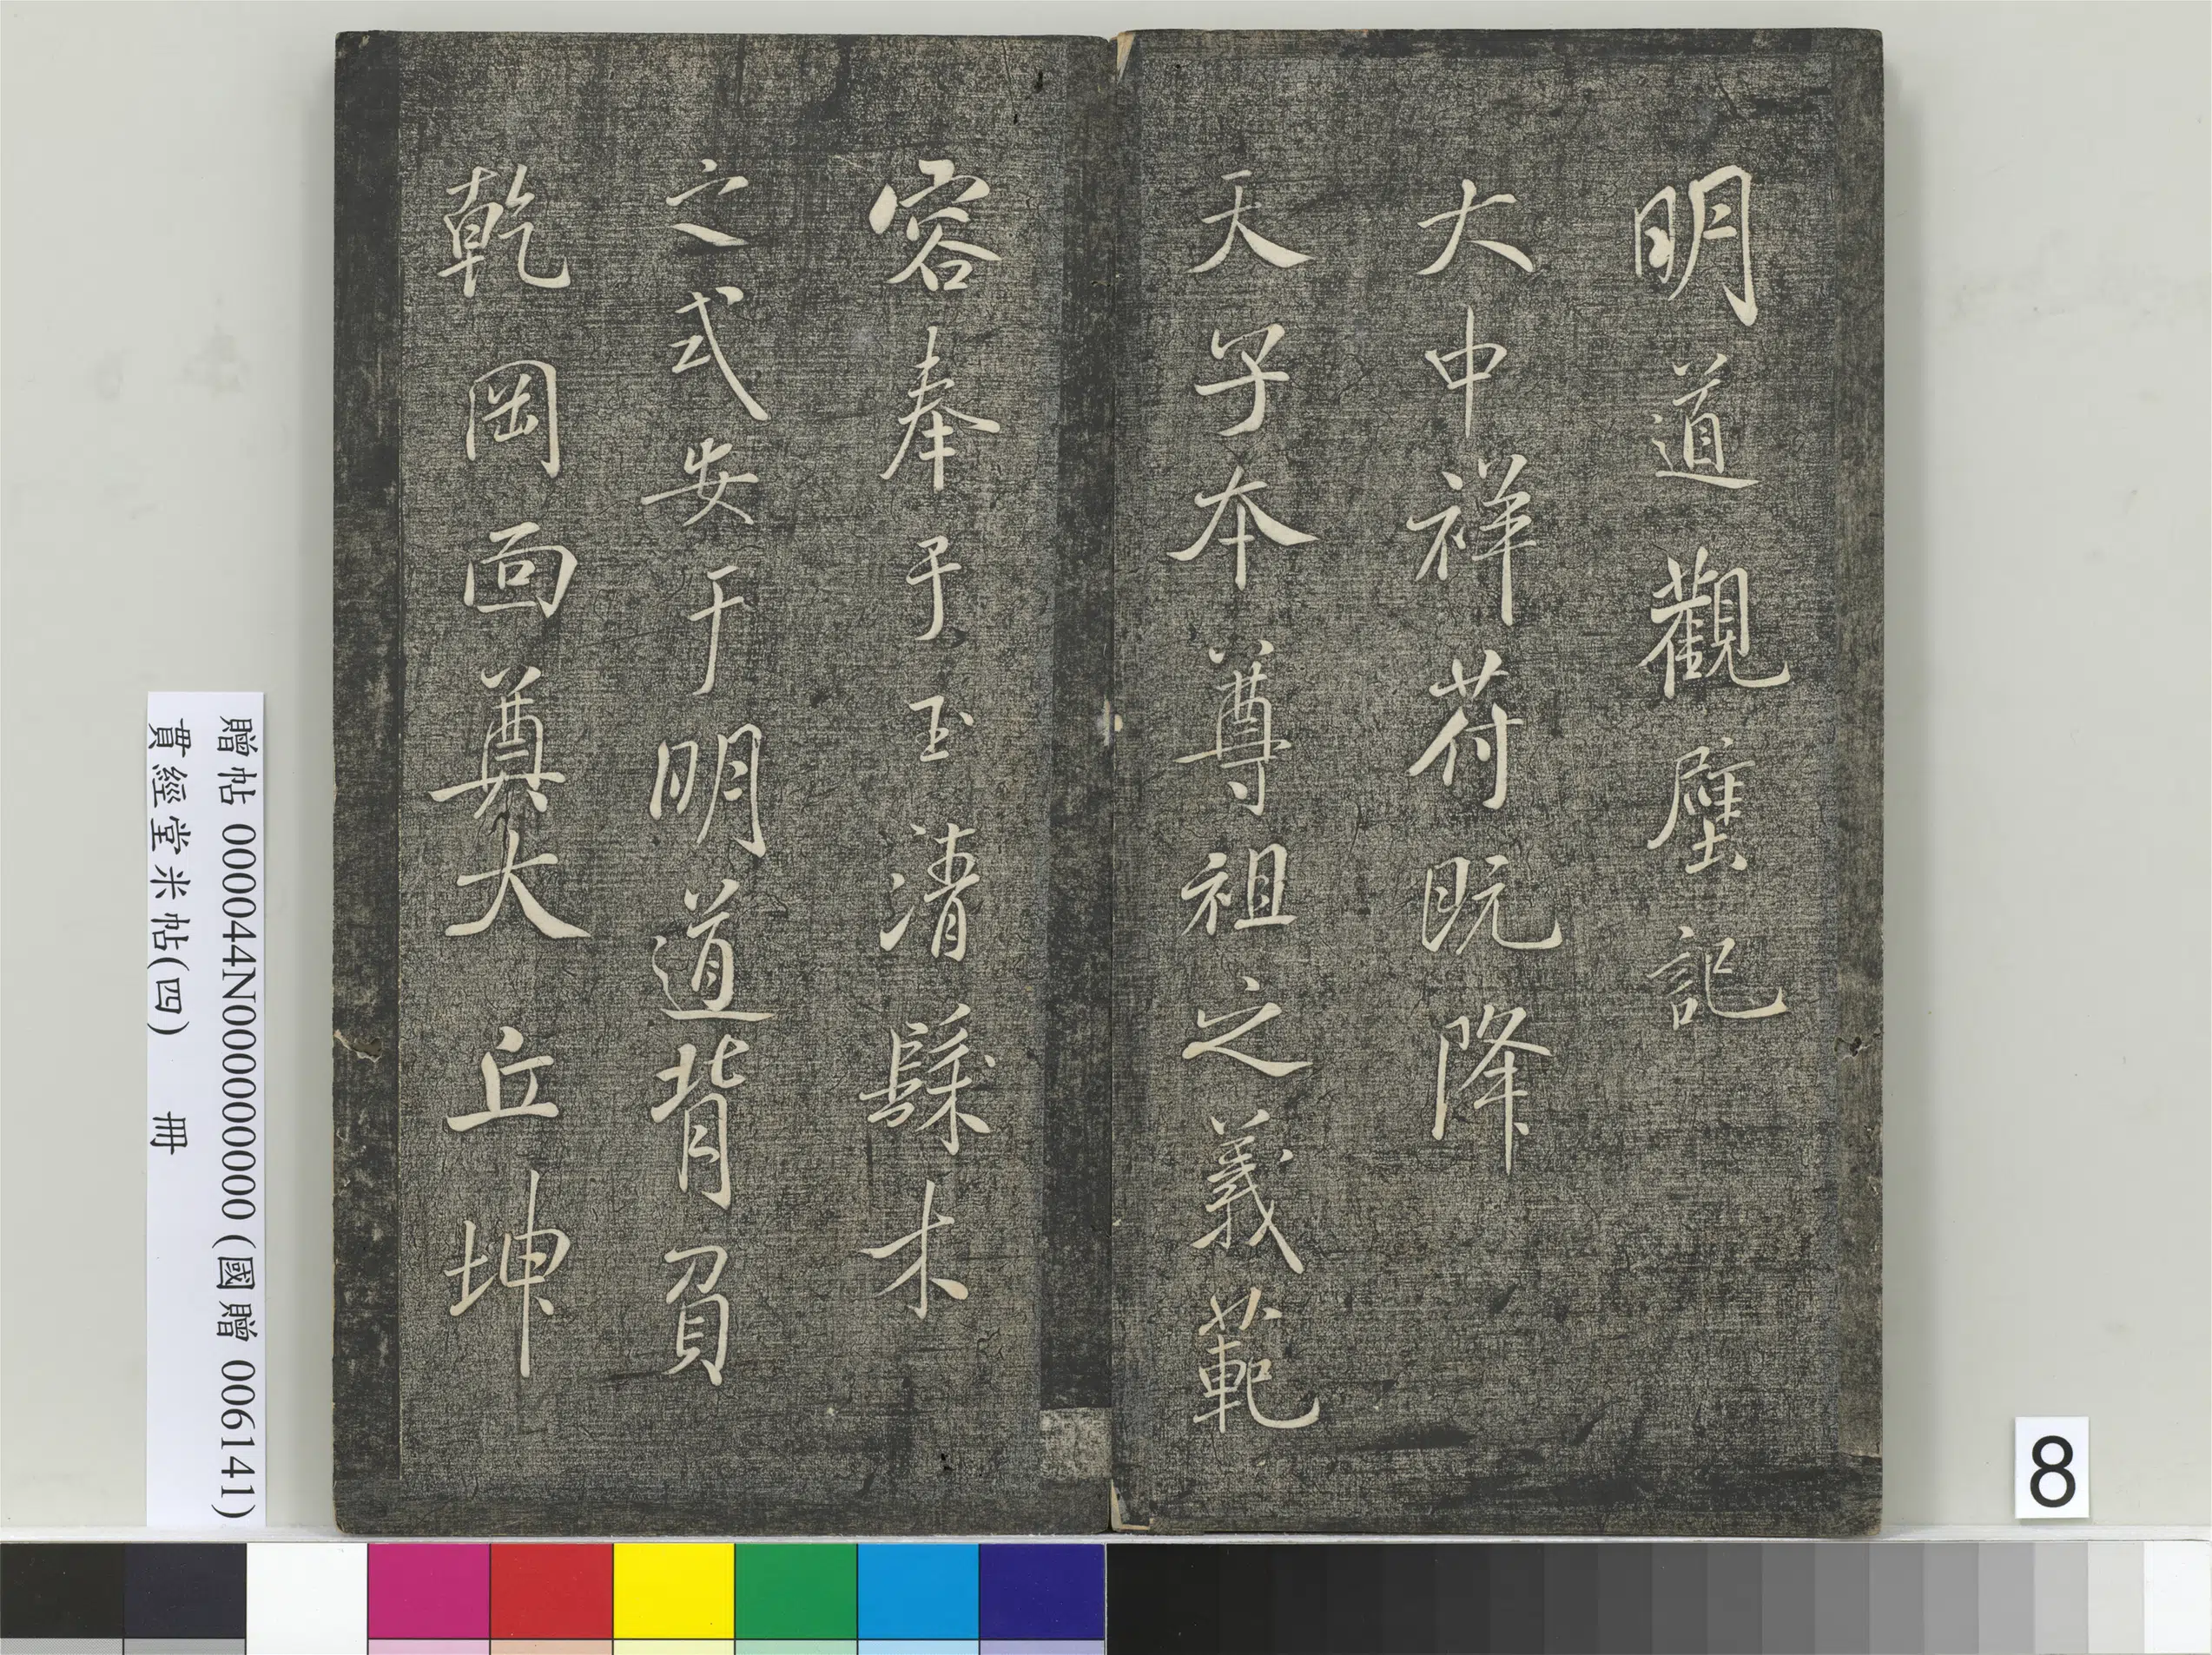 明道觀壁記
大中祥符既降
天子本尊祖之義範
容奉于玉清繇木
之式安于明道背負
乾岡面奠大丘坤
贈帖 000044N000000000 (國贈 006141)
貫經堂米帖(四) 冊
8